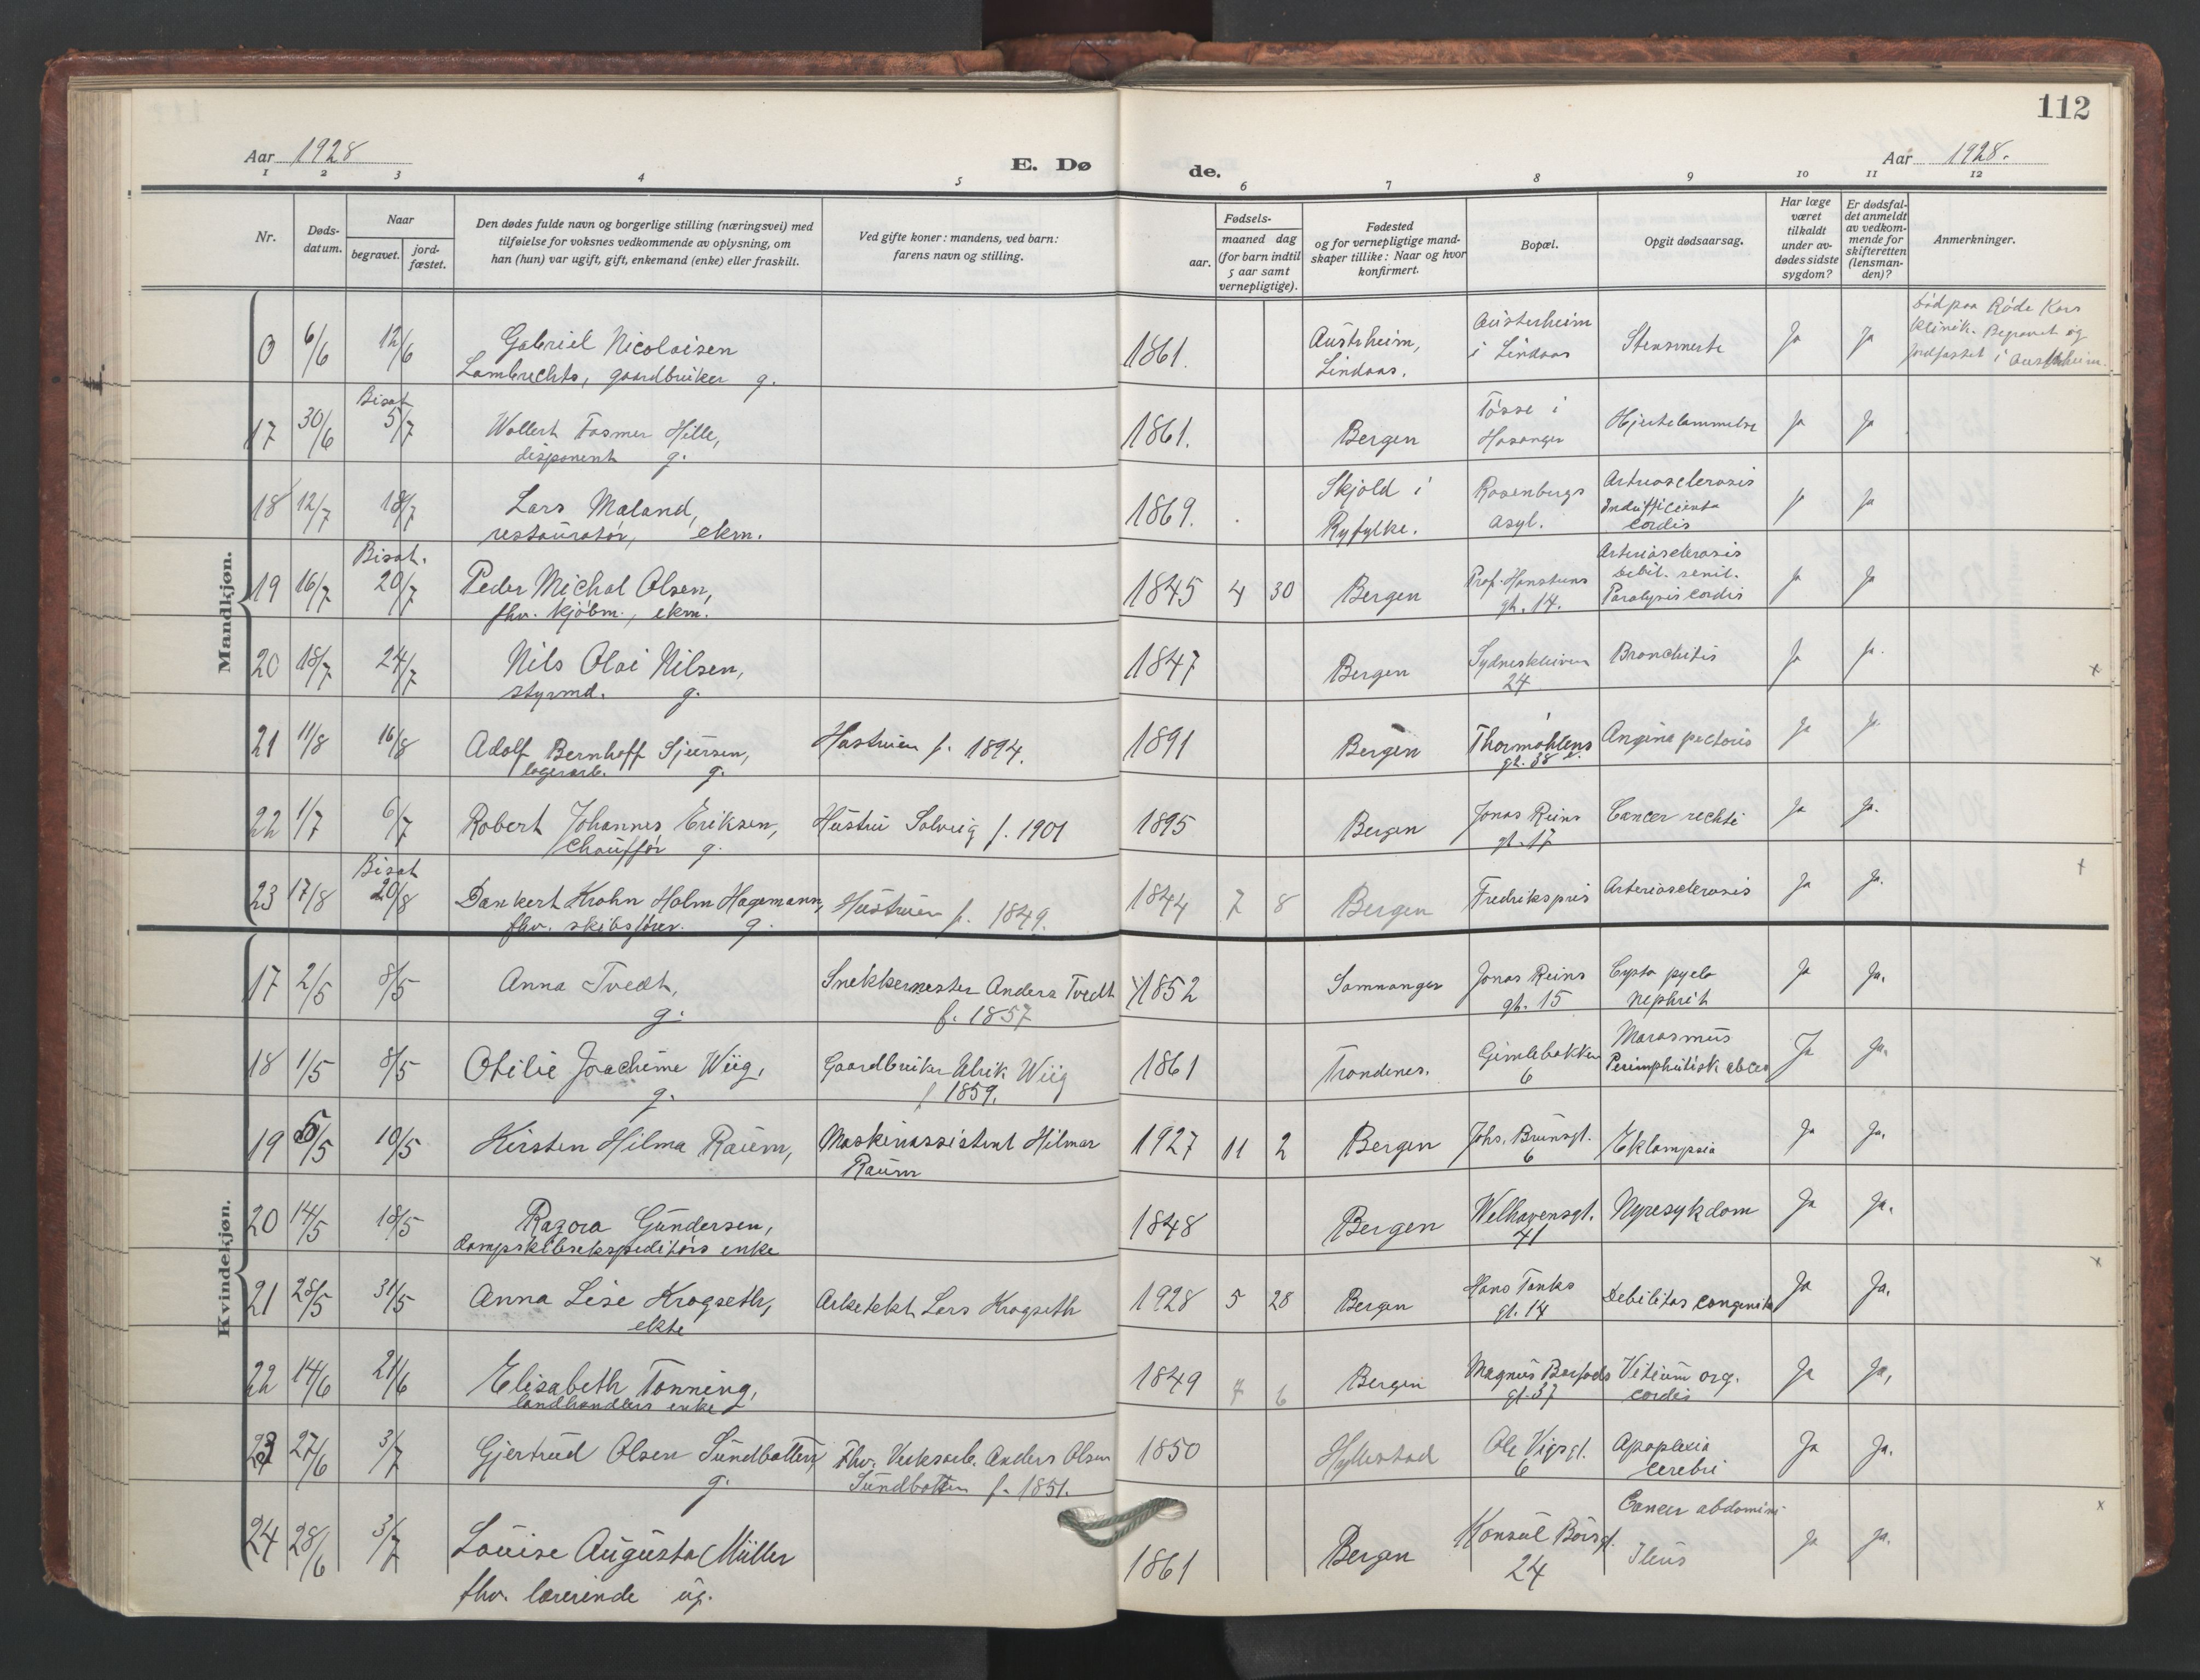 112
Aar 1928
E. Dø
de.
Aar 1928.
1 2 3 4 5 6 7 8 9 10 11 12
Nr.
Døds-
datum.
Naar
begravet.
jord-
fæstet.
Den dødes fulde navn og borgerlige stilling (næringsvei) med
tilføielse for voksnes vedkommende av oplysning, om
han (hun) var ugift, gift, enkemand (enke) eller fraskilt.
Ved gifte koner: mandens, ved barn:
farens navn og stilling.
Fødsels-
aar.
maaned dag
(for barn indtil
5 aar samt
vernepligtige).
Fødested
og for vernepligtige mand-
skaper tillike: Naar og hvor
konfirmert.
Bopæl.
Opgit dødsaarsag.
Har læge
været
tilkaldt
under av-
dødes sidste
sygdom?
Er dødsfal-
det anmeldt
av vedkom-
mende for
skifteretten
(lensman-
den)?
Anmerkninger.
Mandkjøn.
0 6/6 12/6 Gabriel Nicolaisen
Lambrechts, gaardbruker g.
1861. Austrheim,
Lindaas.
Austerheim
i Lindaas
Stensmerte Ja Ja
Död paa Röde Kors
Klinik. Begravet og
jordfæstet i Austrheim.
17 30/6 Bisat
5/7 Wollert Fasmer Hille,
disponent g.
1861. Bergen
Tösse i
Hosanger
Hjertelammelse Ja Ja
18 12/7 18/7 Lars Maland,
restauratör, ekm.
1869. Skjold i
Ryfylke.
Rosenbergs
asyl.
Arteriosclerosis
Insufficients
cordis
Ja Ja
19 16/7 Bisat.
20/7 Peder Michal Olsen,
fhv. kjöbm., ekm.
1845 4 30 Bergen
Prof. Hansteens
gt. 14.
Arteriosclerosis
debil. senil.
Paralysis cordis
Ja Ja
20 18/7 24/7 Nils Olai Nilsen,
styrmd. g.
1847 Bergen
Sydneskleiven
24
Bronchitis Ja Ja. x
21 11/8 16/8 Adolf Bernhoff Sjursen,
lagerarb. g.
Hustruen f. 1894.
1891 Bergen
Thormøhlens
gt. 38 e.
Angina pectoris Ja Ja
22 1/7 6/7 Robert Johannes Eriksen,
Chauffør g.
Hustru Solveig f. 1901
1895 Bergen
Jonas Reins
gt. 17
Cancer recti Ja Ja.
23 17/8 Bisat
20/8 Dankert Krohn Holm Hagemann,
fhv. skibsfører. g.
Hustruen f. 1849.
1844 7 8 Bergen
Fredrikspris
Arteriosclerosis Ja Ja. +
Kvindekjøn.
17 2/5 8/5 Anna Tvedt,
g.
Snekkermester Anders Tvedt
f. 1857
1852 Samnanger
Jonas Reins
gt. 15
Cysto pyelo
nephrit
Ja Ja.
18 1/5 8/5 Otilie Joachime Wiig,
g.
Gaardbruker Ulrik Wiig
f 1859.
1861 Trondenes.
Gimlebakken
6
Marasmus
Ja Ja.
19 5/5 10/5 Kirsten Hilma Raum,
Maskinassistent Hilmar
Raum
1927 11 2 Bergen
Johs. Brunsgt.
6
Eklampsia Ja Ja.
20 14/5 18/5 Gundersen,
dampskibsekspeditörs enke
1848 Bergen
Welhavensgt.
41
Nyresykdom Ja Ja. x
21 28/5 31/5 Anna Lise Krogseth,
ekte
Arkitekt Lars Krogseth
1928 5 28 Bergen
Hans Tanks
gt. 14
Debilitas congenita Ja Ja.
22 14/6 21/6 Elisabeth Tonning,
landhandlers enke
1849 7 6 Bergen
Magnus Barfods
gt. 37
Vitium org.
cordis
Ja Ja,
23 27/6 3/7 Gjertrud Olsen Sundbotten,
g.
Fhv. Verksarb. Anders Olsen
Sundbotten f. 1851.
1850 Hyllestad
Ole Vigsgt.
6
Apoplexia
cerebri
Ja Ja.
24 28/6 3/7 Louise Augusta Müller
fhv. lærerinde ug.
1861 Bergen
Konsul Børsgt.
24
Cancer abdominis
Ileus
Ja Ja. x